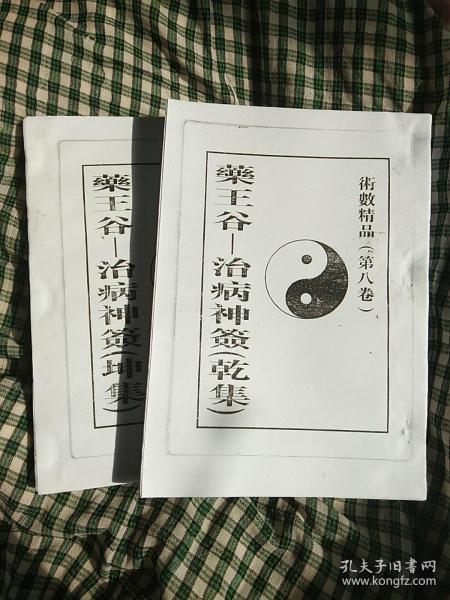 術數精品（第八卷）
藥王谷—治病神簽（乾集）
藥王谷—治病神簽（坤集）
孔夫子旧书网
www.kongfz.com